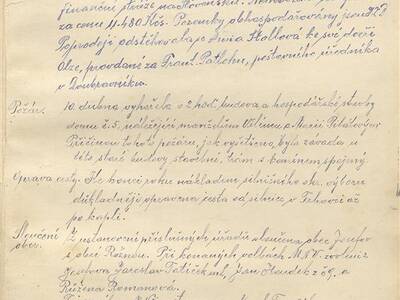 finanční stráže na Slovensku.
za cenu 11.480 Kčs. Pozemky obhospodařovány jsou JZD
Po prodeji odstěhovala se Anna Holbová ke své dceři
Olze, provdané za Frant. Patlehu, poštovního úředníka
v Doubravníku.
Požár. 10. dubna vyhořela o 2. hod. budova a hospodářské stavby
domu č. 5. náležející manželům a Marii
Příčinou tohoto požáru, jak vyšetřeno, byla závada v
této staré budovy stavební, trám s komínem spojený
Oprava cesty. Ke konci roku nákladem silničního sku. výboru
důkladněji opravena cesta od silnice v až
po kapli.
Sloučení obcí. Z ustanovení příslušných úřadů sloučena obec Josefov
s obcí Rožnou. Při konaných volbách M.N.V. zvoleni z
Josefova Jaroslav Jan z č. 9. a
Růžena Romanová.